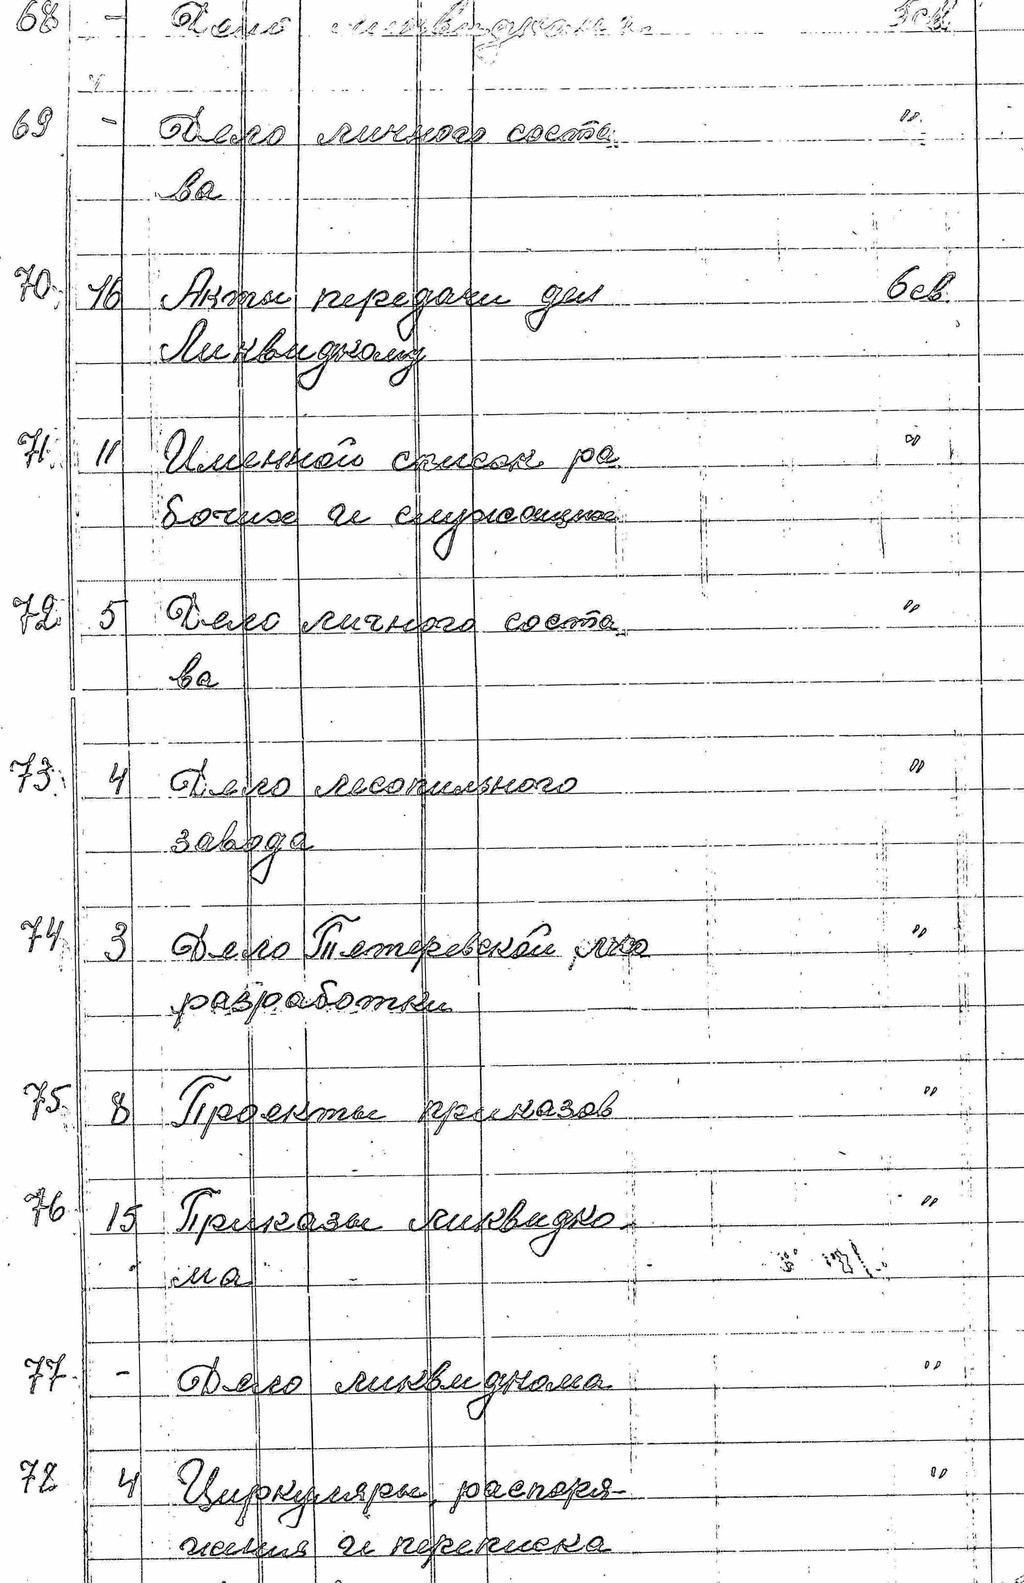 68 - Дело ликвидкома 5св
69 - Дело личного соста- "
ва
70. 16 Акты передачи дел 6св.
Ликвидкому
71. 11 Именной список ра "
бочих и служащих
72. 5 Дело личного соста- "
ва
73. 4 Дело лесопильного "
завода
74. 3 Дело "
разработки
75. 8 Проекты приказов "
76. 15 Приказы ликвидко- "
ма
77. - Дело ликвидкома "
78 4 Циркуляры, распоря- "
жения и переписка